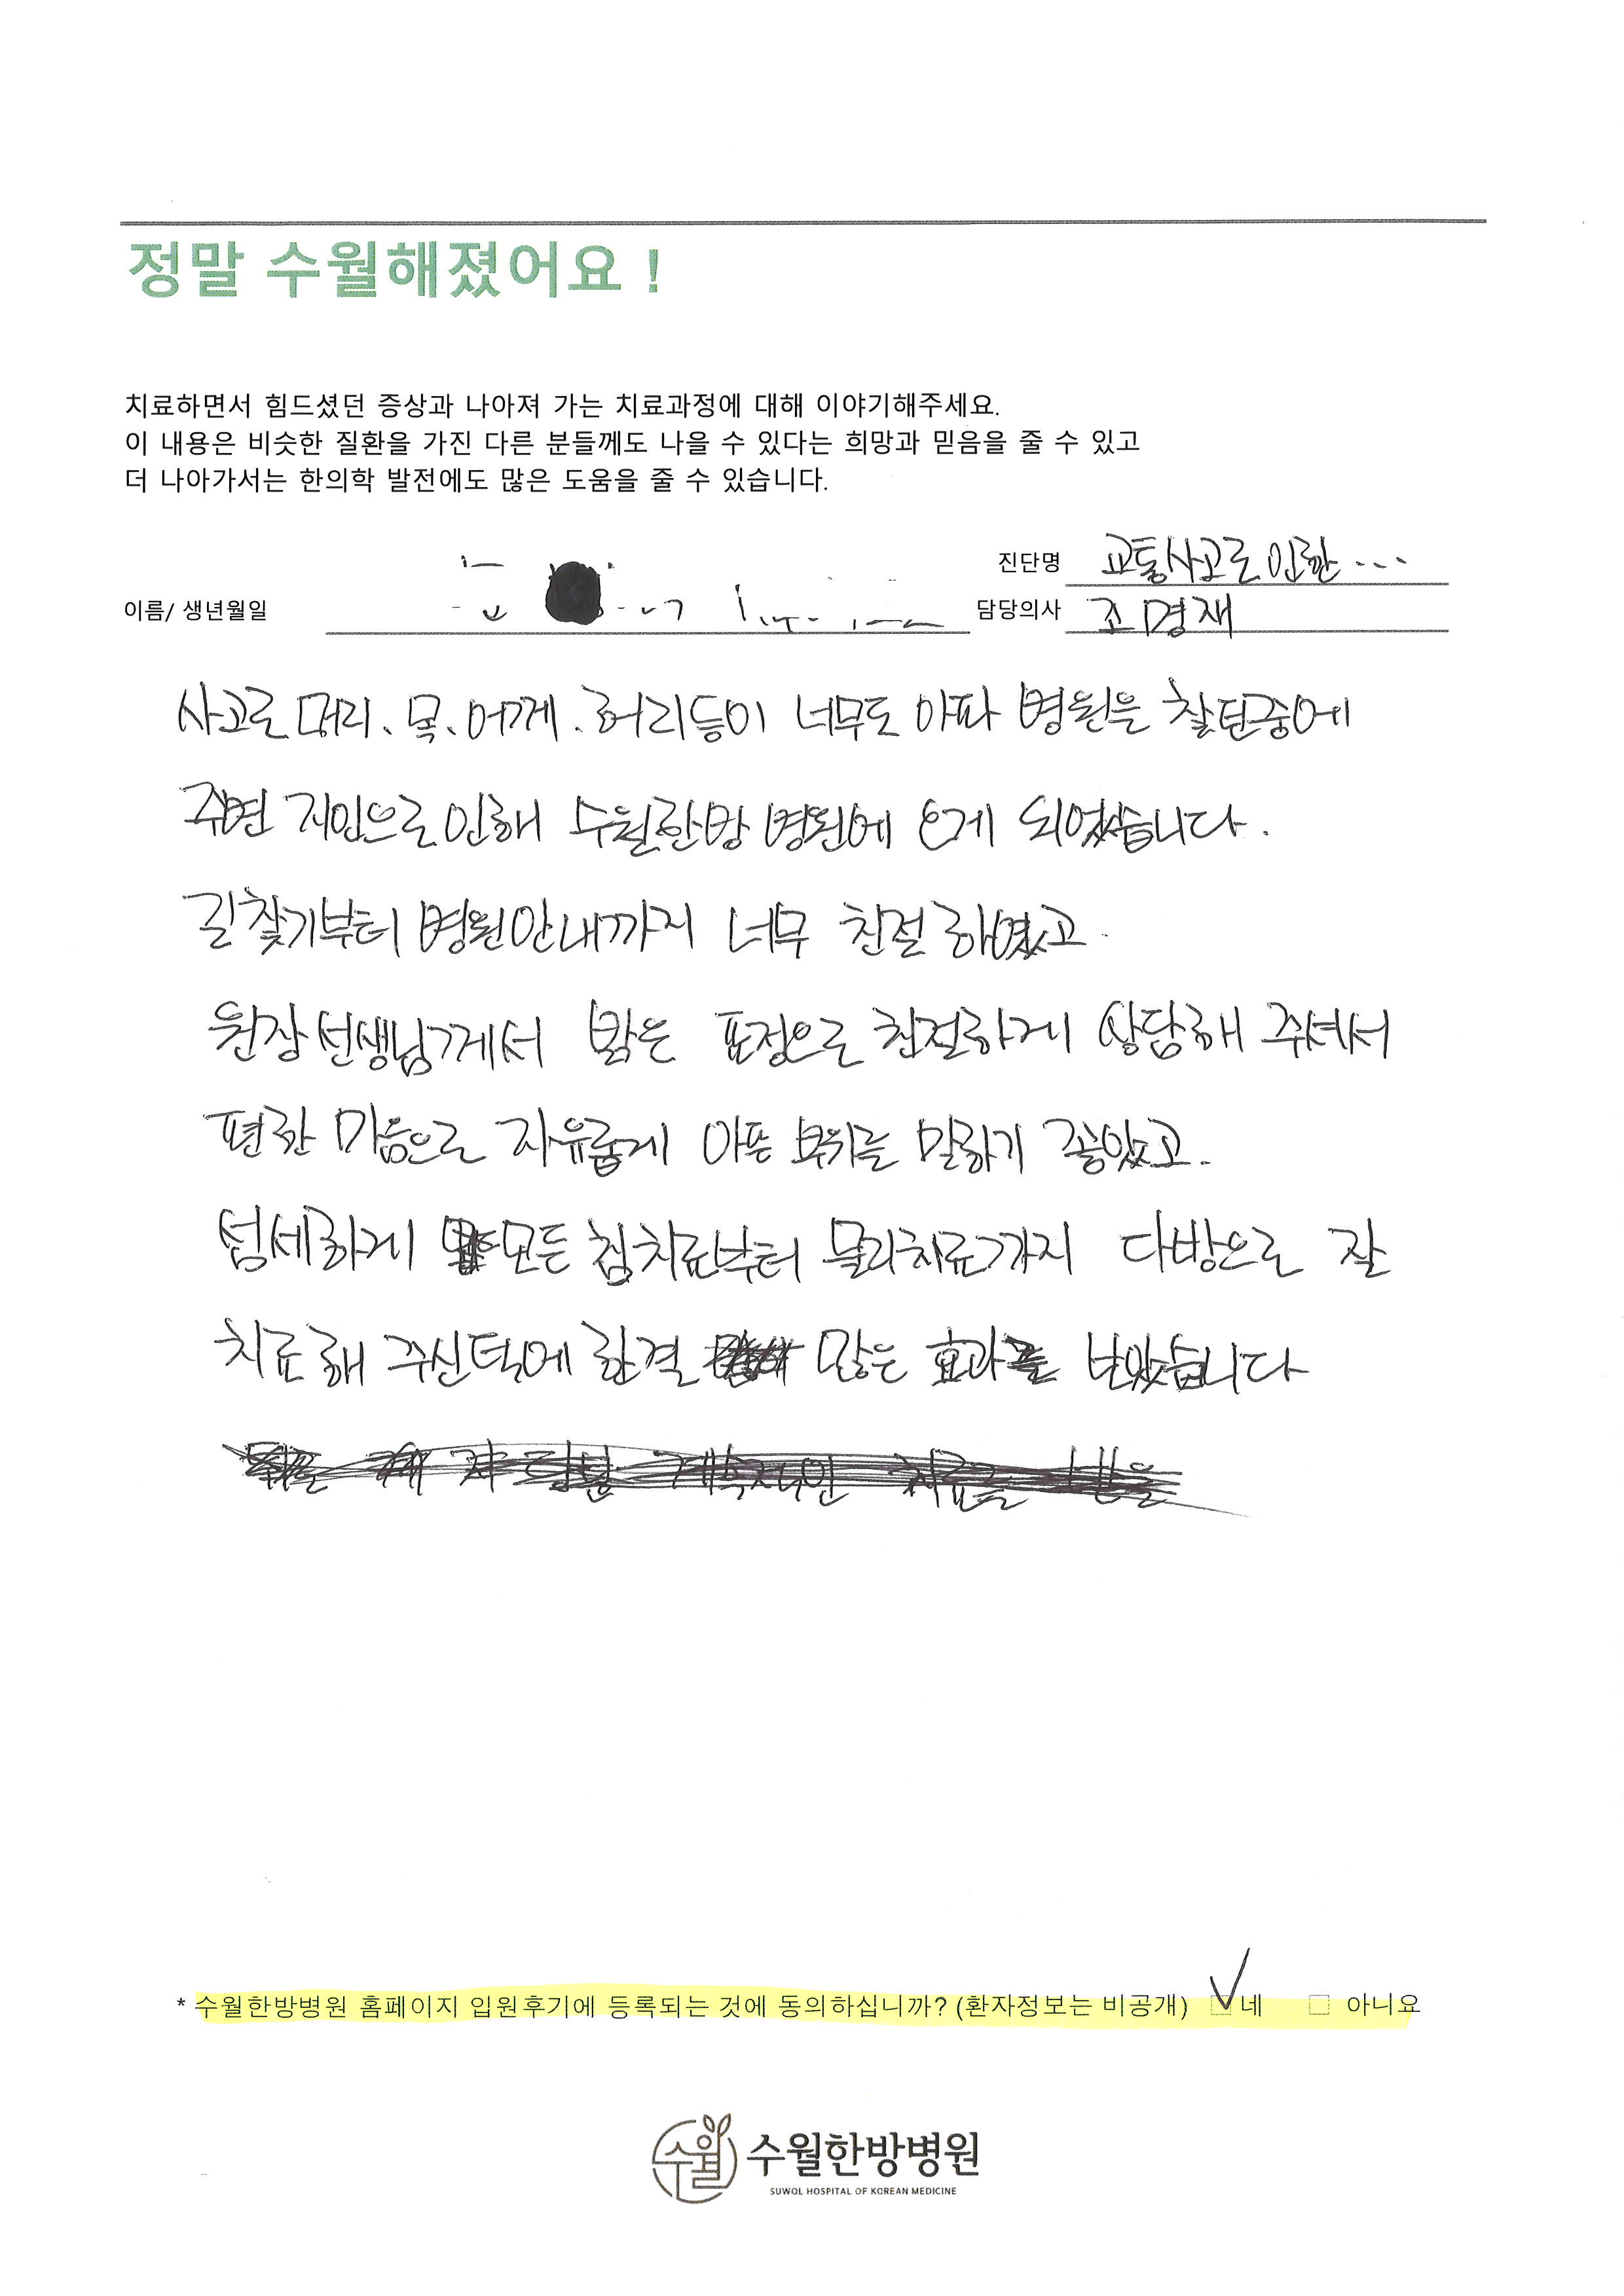 정말 수월해졌어요 !
치료하면서 힘드셨던 증상과 나아져 가는 치료과정에 대해 이야기해주세요.
이 내용은 비슷한 질환을 가진 다른 분들께도 나을 수 있다는 희망과 믿음을 줄 수 있고
더 나아가서는 한의학 발전에도 많은 도움을 줄 수 있습니다.
진단명 교통사고로 인한 ...
이름/ 생년월일
담당의사 조명재
사고로 머리. 목. 어깨. 허리등이 너무도 아파 병원은 찾던중에
주변 지인으로 인해 수월한방 병원에 오게 되었습니다.
길찾기부터 병원안내까지 너무 친절하였고.
원장선생님께서 밝은 표정으로 친절하게 상담해 주셔서
편한 마음으로 자유롭게 아픈 부위를 말하기 좋았고.
섬세하게 모든 침치료부터 물리치료까지 다방으로 잘
치료해 주신덕에 한결 많은 효과를 난았습니다
계속적인 치료를
* 수월한방병원 홈페이지 입원후기에 등록되는 것에 동의하십니까? (환자정보는 비공개) 네 아니요
수월 수월한방병원
SUWOL HOSPITAL OF KOREAN MEDICINE